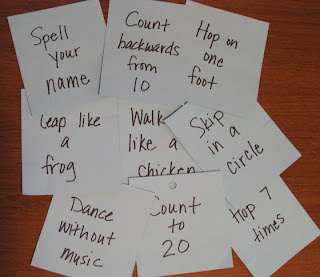 Spell
your
name
Count
backwards
from
10
Hop on
one
foot
Leap like
a
frog
Walk
like a
chicken
Skip
in a
circle
Dance
without
music
Count
to
20
Hop 7
times